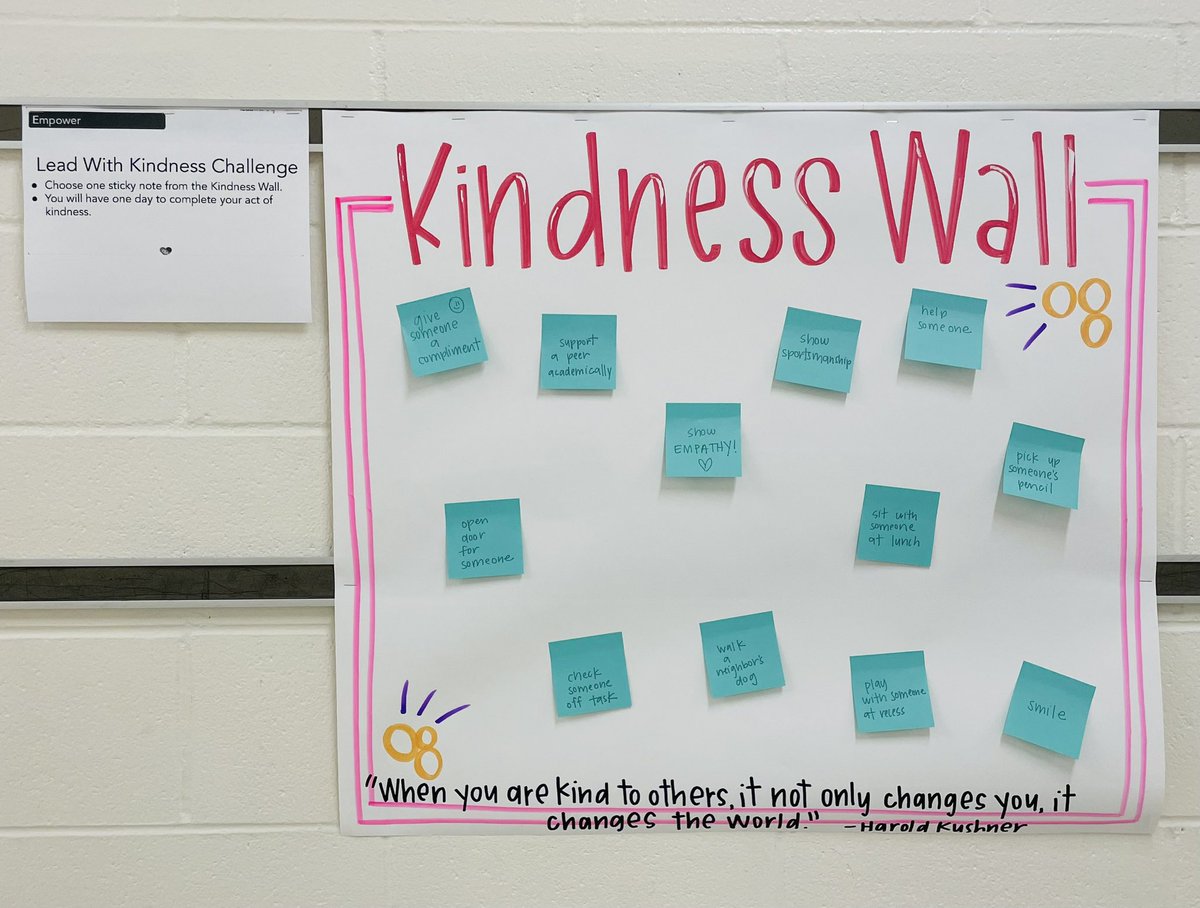 Empower
Lead With Kindness Challenge
● Choose one sticky note from the Kindness Wall.
● You will have one day to complete your act of
kindness.
Kindness Wall
give
someone
a
compliment
support
a peer
academically
show
sportsmanship
help
someone
show
EMPATHY!
pick up
someone's
pencil
open
door
for
someone
sit with
someone
at lunch
check
someone
off task
walk
a
neighbor's
dog
play
with someone
at recess
smile
"When you are kind to others, it not only changes you, it
changes the world." -Harold Kushner